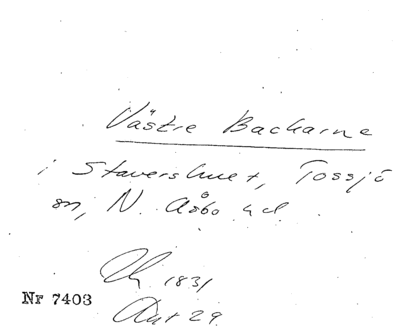 Västre Backarne
i Stavershuet, Tossjö
sn, N. Åsbo hd.
1831
Nr 7403
Akt 29.